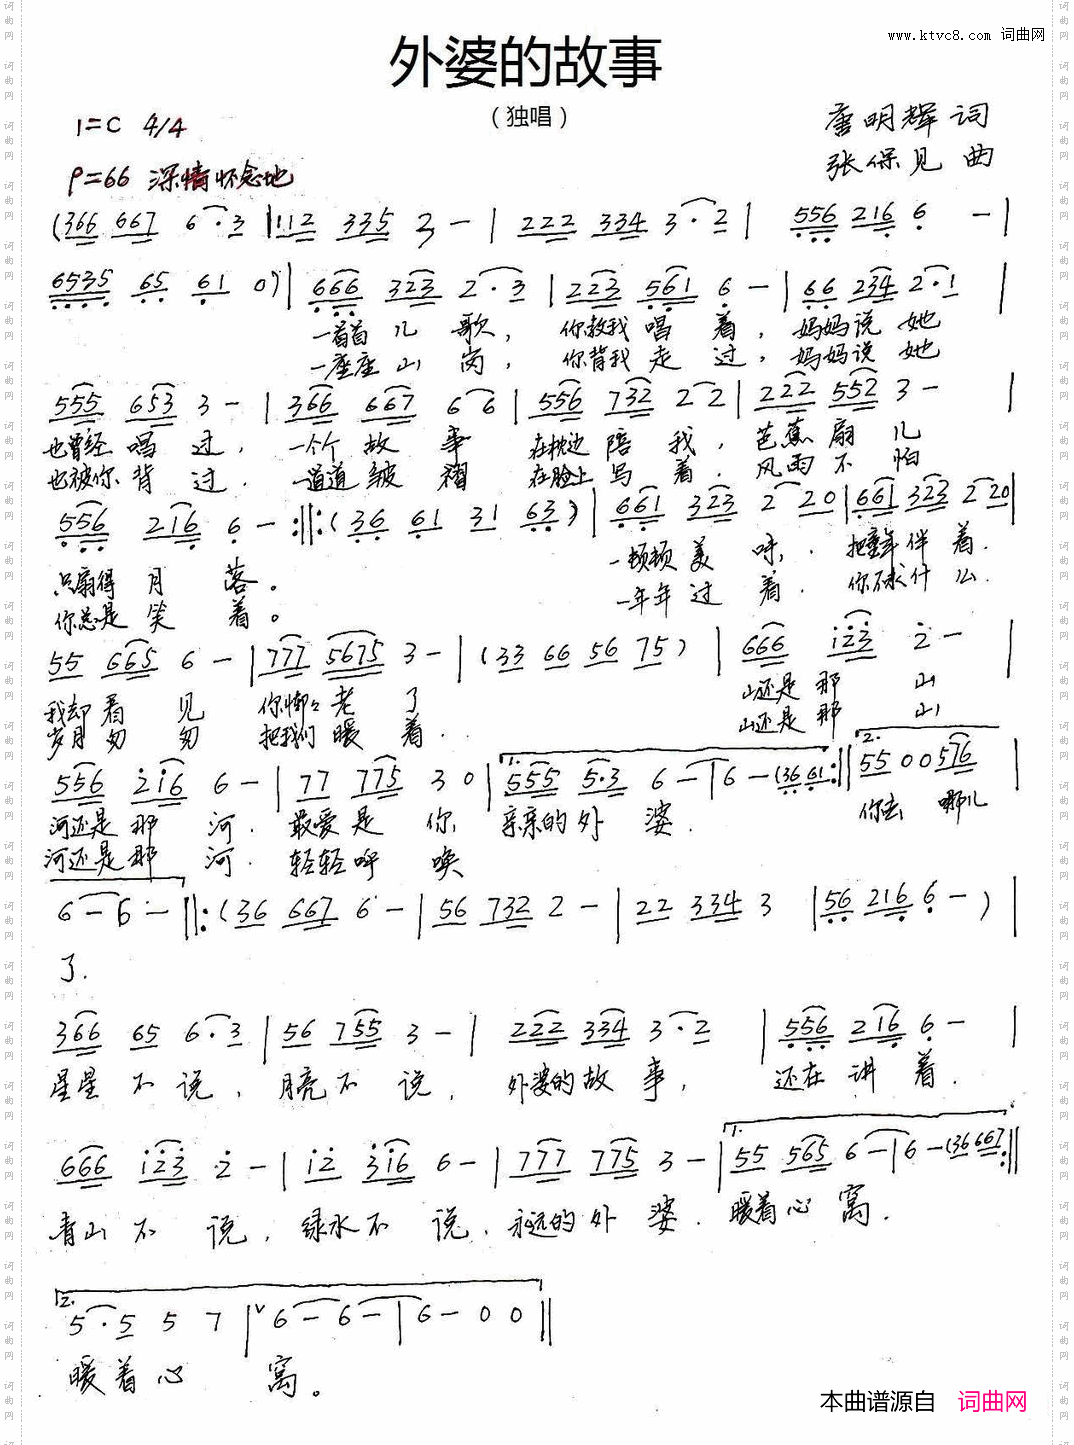 www.ktvc8.com 词曲网
外婆的故事
（独唱）
1=C 4/4
唐明辉 词
张保见 曲
♩=66 深情怀念地
(366 667 6·3 | 112 335 2 - | 222 334 3·2 | 556 216 6 - |
6535 65 61 0) | 666 323 2·3 | 223 561 6 - | 66 234 2·1 |
一首首儿歌， 你教我唱着， 妈妈说她
一座座山岗， 你背我走过， 妈妈说她
555 653 3 - | 366 667 6 6 | 556 732 2 2 | 222 552 3 - |
也曾经唱过， 一个个故事 在枕边陪我， 芭蕉扇儿
也被你背过， 一道道皱褶 在脸上写着， 风雨不怕
556 216 6 - :||: (36 61 31 63) | 661 323 2 20 | 661 323 2 20 |
只扇得月落。 一顿顿美味， 把童年伴着．
你总是笑着。 一年年过着， 你不求什么．
55 665 6 - | 777 5675 3 - | (33 66 56 75) | 666 i23 2 - |
我却看见 你慢慢老了 山还是那山
岁月匆匆 把我们暖着． 山还是那山
556 216 6 - | 77 775 3 0 | 1. 555 5·3 6 - | 6 - (36 61 :|| 2. 55 0 0 576 |
河还是那河． 最爱是你， 亲亲的外婆． 你去哪儿
河还是那河． 轻轻呼唤
6 - 6 - ||: (36 667 6 - | 56 732 2 - | 22 334 3 | 56 216 6 - ) |
了．
366 65 6·3 | 56 755 3 - | 222 334 3·2 | 556 216 6 - |
星星不说， 月亮不说， 外婆的故事， 还在讲着．
666 i23 2 - | i2 3i6 6 - | 777 775 3 - | 1. 55 565 6 - | 6 - (36 667 :||
青山不说， 绿水不说， 永远的外婆． 暖着心窝．
2. 5·5 5 7 | 6 - 6 - | 6 - 0 0 ||
暖着心窝。
本曲谱源自 词曲网